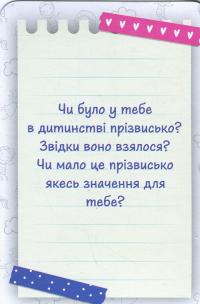 Чи було у тебе
в дитинстві прізвисько?
Звідки воно взялося?
Чи мало це прізвисько
якесь значення для
тебе?